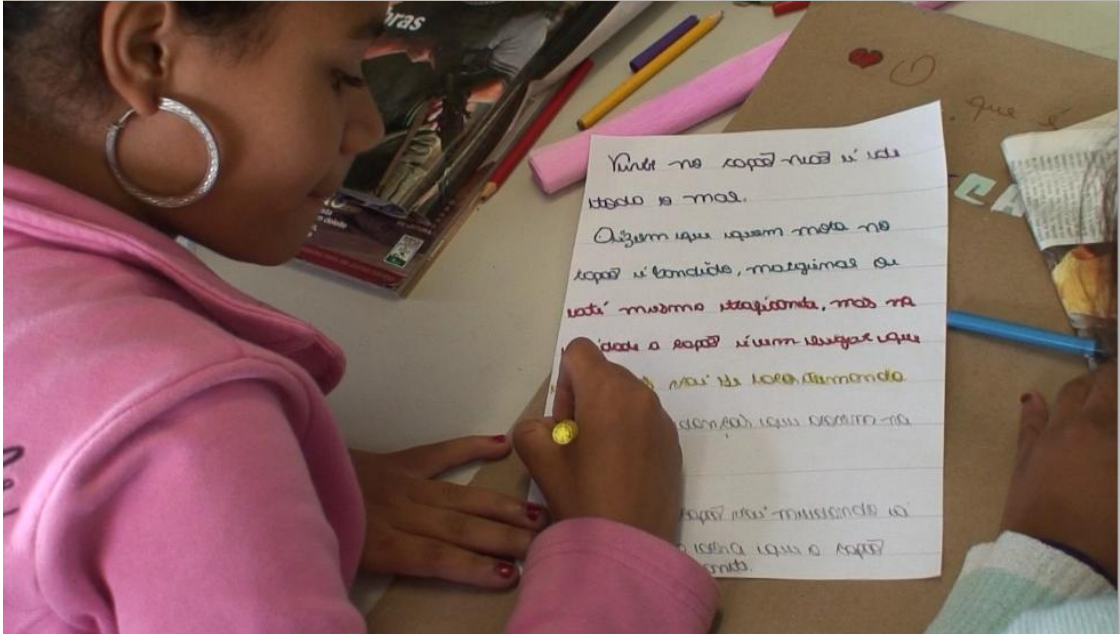 bras
O
que é
CA
Viver no capão não é de
todo o mal.
Dizem que quem mora no
capão é bandido, marginal ou
até mesmo traficante, mas na
dade o capão é um lugar que
vai se
que ocorrem na
capão vai mudando a
ideia que o capão